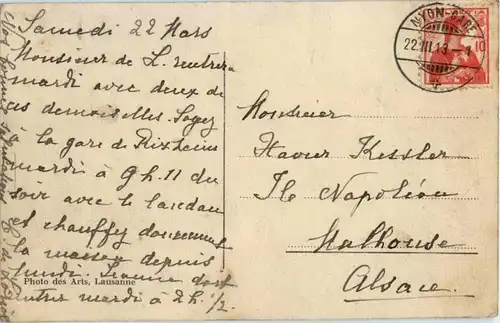 Samedi 22 Mars
Monsieur de L. rentrera
mardi avec deux de
ces demoiselles. Soyez
à la gare de Rixheim
mardi à 9h.11 du
soir avec le landau
et chauffez doucement
la maison depuis
lundi. Jeanne doit
rentrer mardi à 2h. 1/2
Photo des Arts, Lausanne
NYON-GARE
22.III.13 - 7
10
Monsieur
Xavier Kessler
Ile Napoléon
Mulhouse
Alsace.